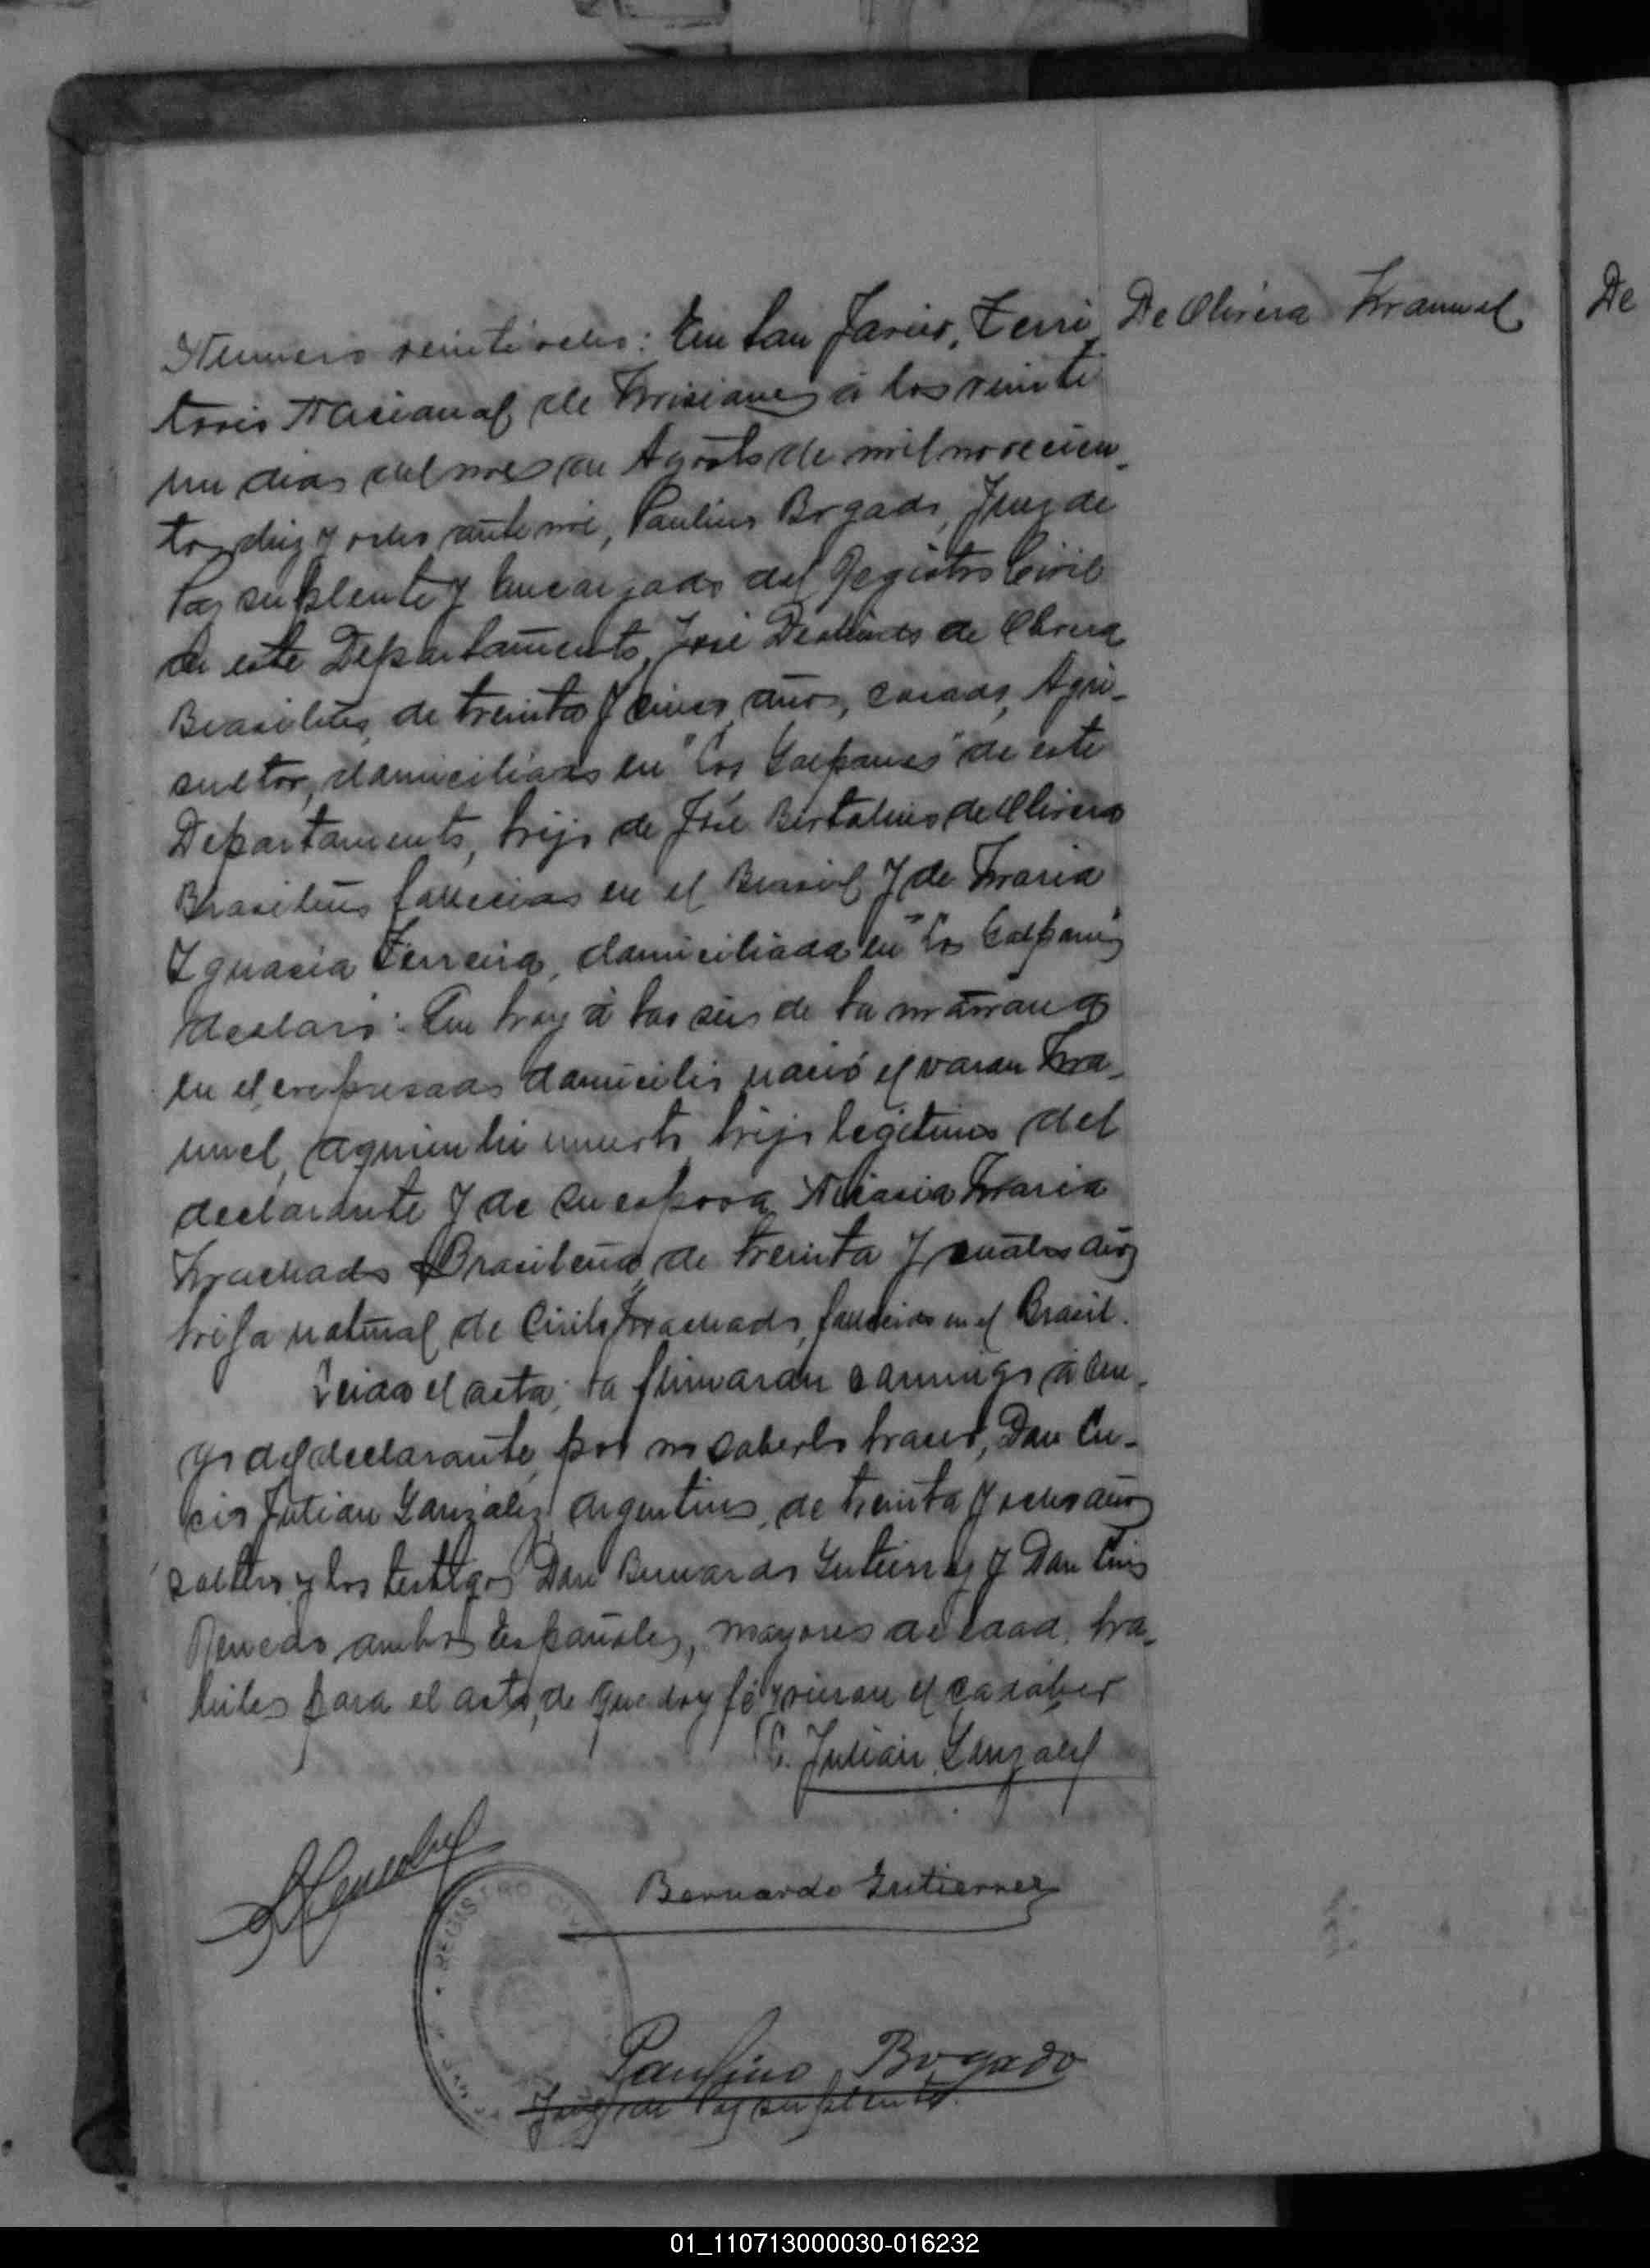 De Olivera Manuel
De
Numero veintiocho: En San Javier, Terri
torio Nacional de Misiones á los veinti
un dias del mes de Agosto de mil novecien-
tos diez y ocho ante mi, Paulino Bogado, Juez de
Paz suplente y Encargado del Registro Civil
de este Departamento, José de Olivera
Brasileño, de treinta y cinco años, casado, Agri-
cultor, domiciliado en "Los Galpones" de este
Departamento, hijo de José de Olivera
Brasileño fallecido en el Brasil y de Maria
Ignacia Ferreira, domiciliada en "Los Galpones"
declaró: Que hoy á las seis de la mañana
en el expresado domicilio nació el varon Ma-
nuel, hijo legitimo del
declarante y de su esposa Maria
Machado Brasileña, de treinta y cuatro años
hija natural de Machado, fallecido en el Brasil.
Leida el acta, la firmaran conmigo á rue-
go del declarante, por no saberlo hacer, Don
Julian Gonzalez, Argentino, de treinta y ocho años
soltero y los testigos Don Bernardo Gutierrez y Don Luis
ambos Españoles, mayores de edad, ha-
biles para el acto, de que doy fé y vieron el cadaber
C. Julián Gonzalez
Bernardo Gutierrez
REGISTRO CIVIL
Paulino Bogado
Juez de Paz suplente
01_110713000030-016232